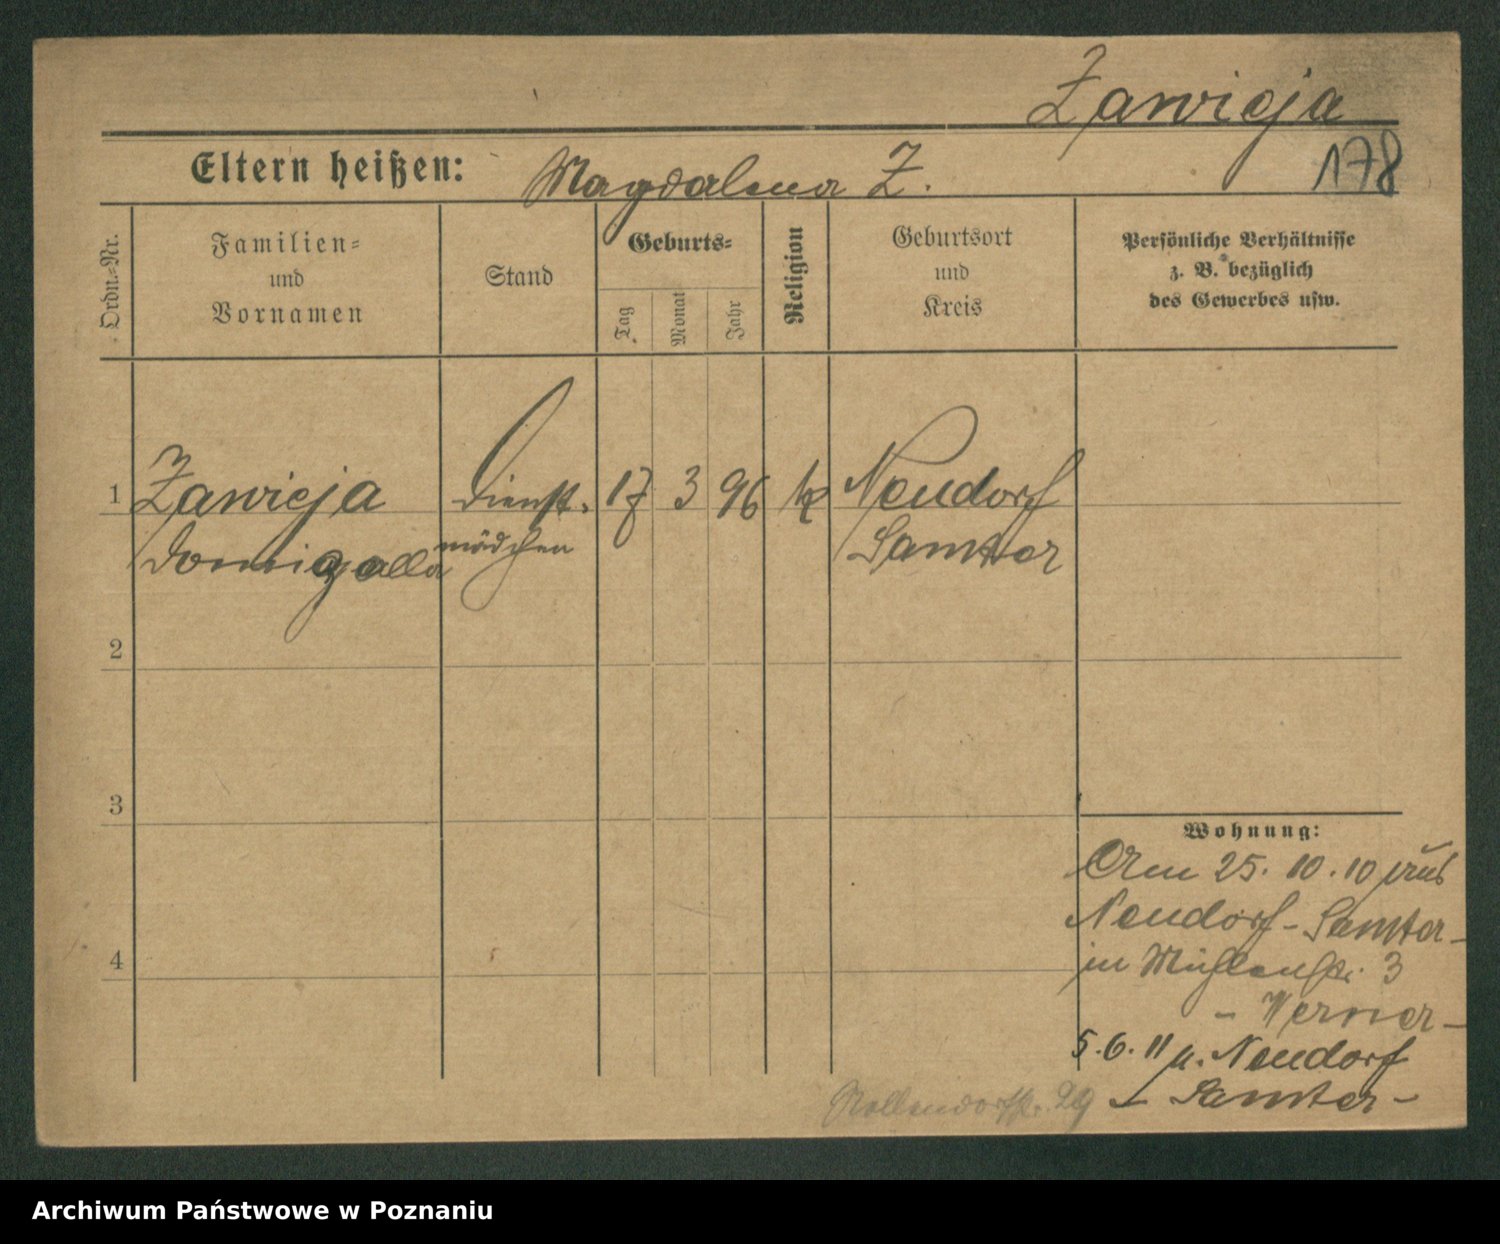 Zawieja
178
Eltern heißen: Magdalena Z.
Ordn.=Nr.
Familien=
und
Vornamen
Stand
Geburts=
Tag
Monat
Jahr
Religion
Geburtsort
und
Kreis
Persönliche Verhältnisse
z. B. bezüglich
des Gewerbes usw.
1 Zawieja Dienst- 17 3 96 k Neudorf
mädchen Samter
2
3
4
Wohnung:
Am 25. 10. 10 aus
Neudorf - Samter -
in Mühlenstr. 3
- Werner -
5. 6. 11 n. Neudorf
- Samter -
Nollendorfstr. 29
Archiwum Państwowe w Poznaniu